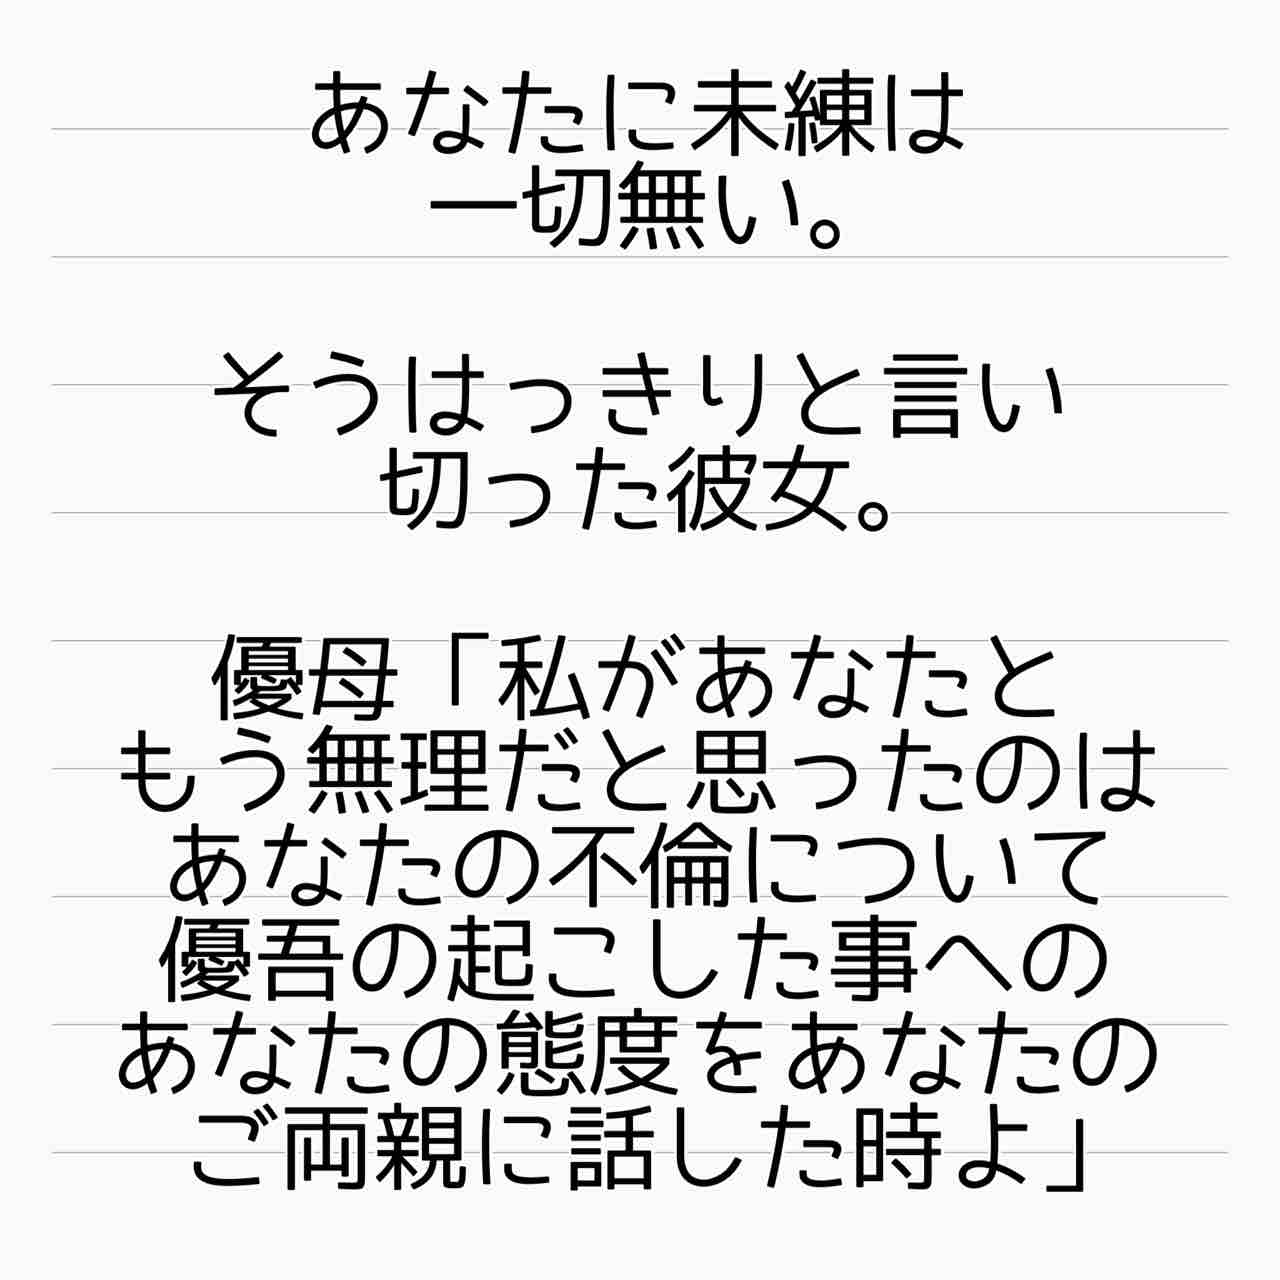 あなたに未練は
一切無い。
そうはっきりと言い
切った彼女。
優母「私があなたと
もう無理だと思ったのは
あなたの不倫について
優吾の起こした事への
あなたの態度をあなたの
ご両親に話した時よ」